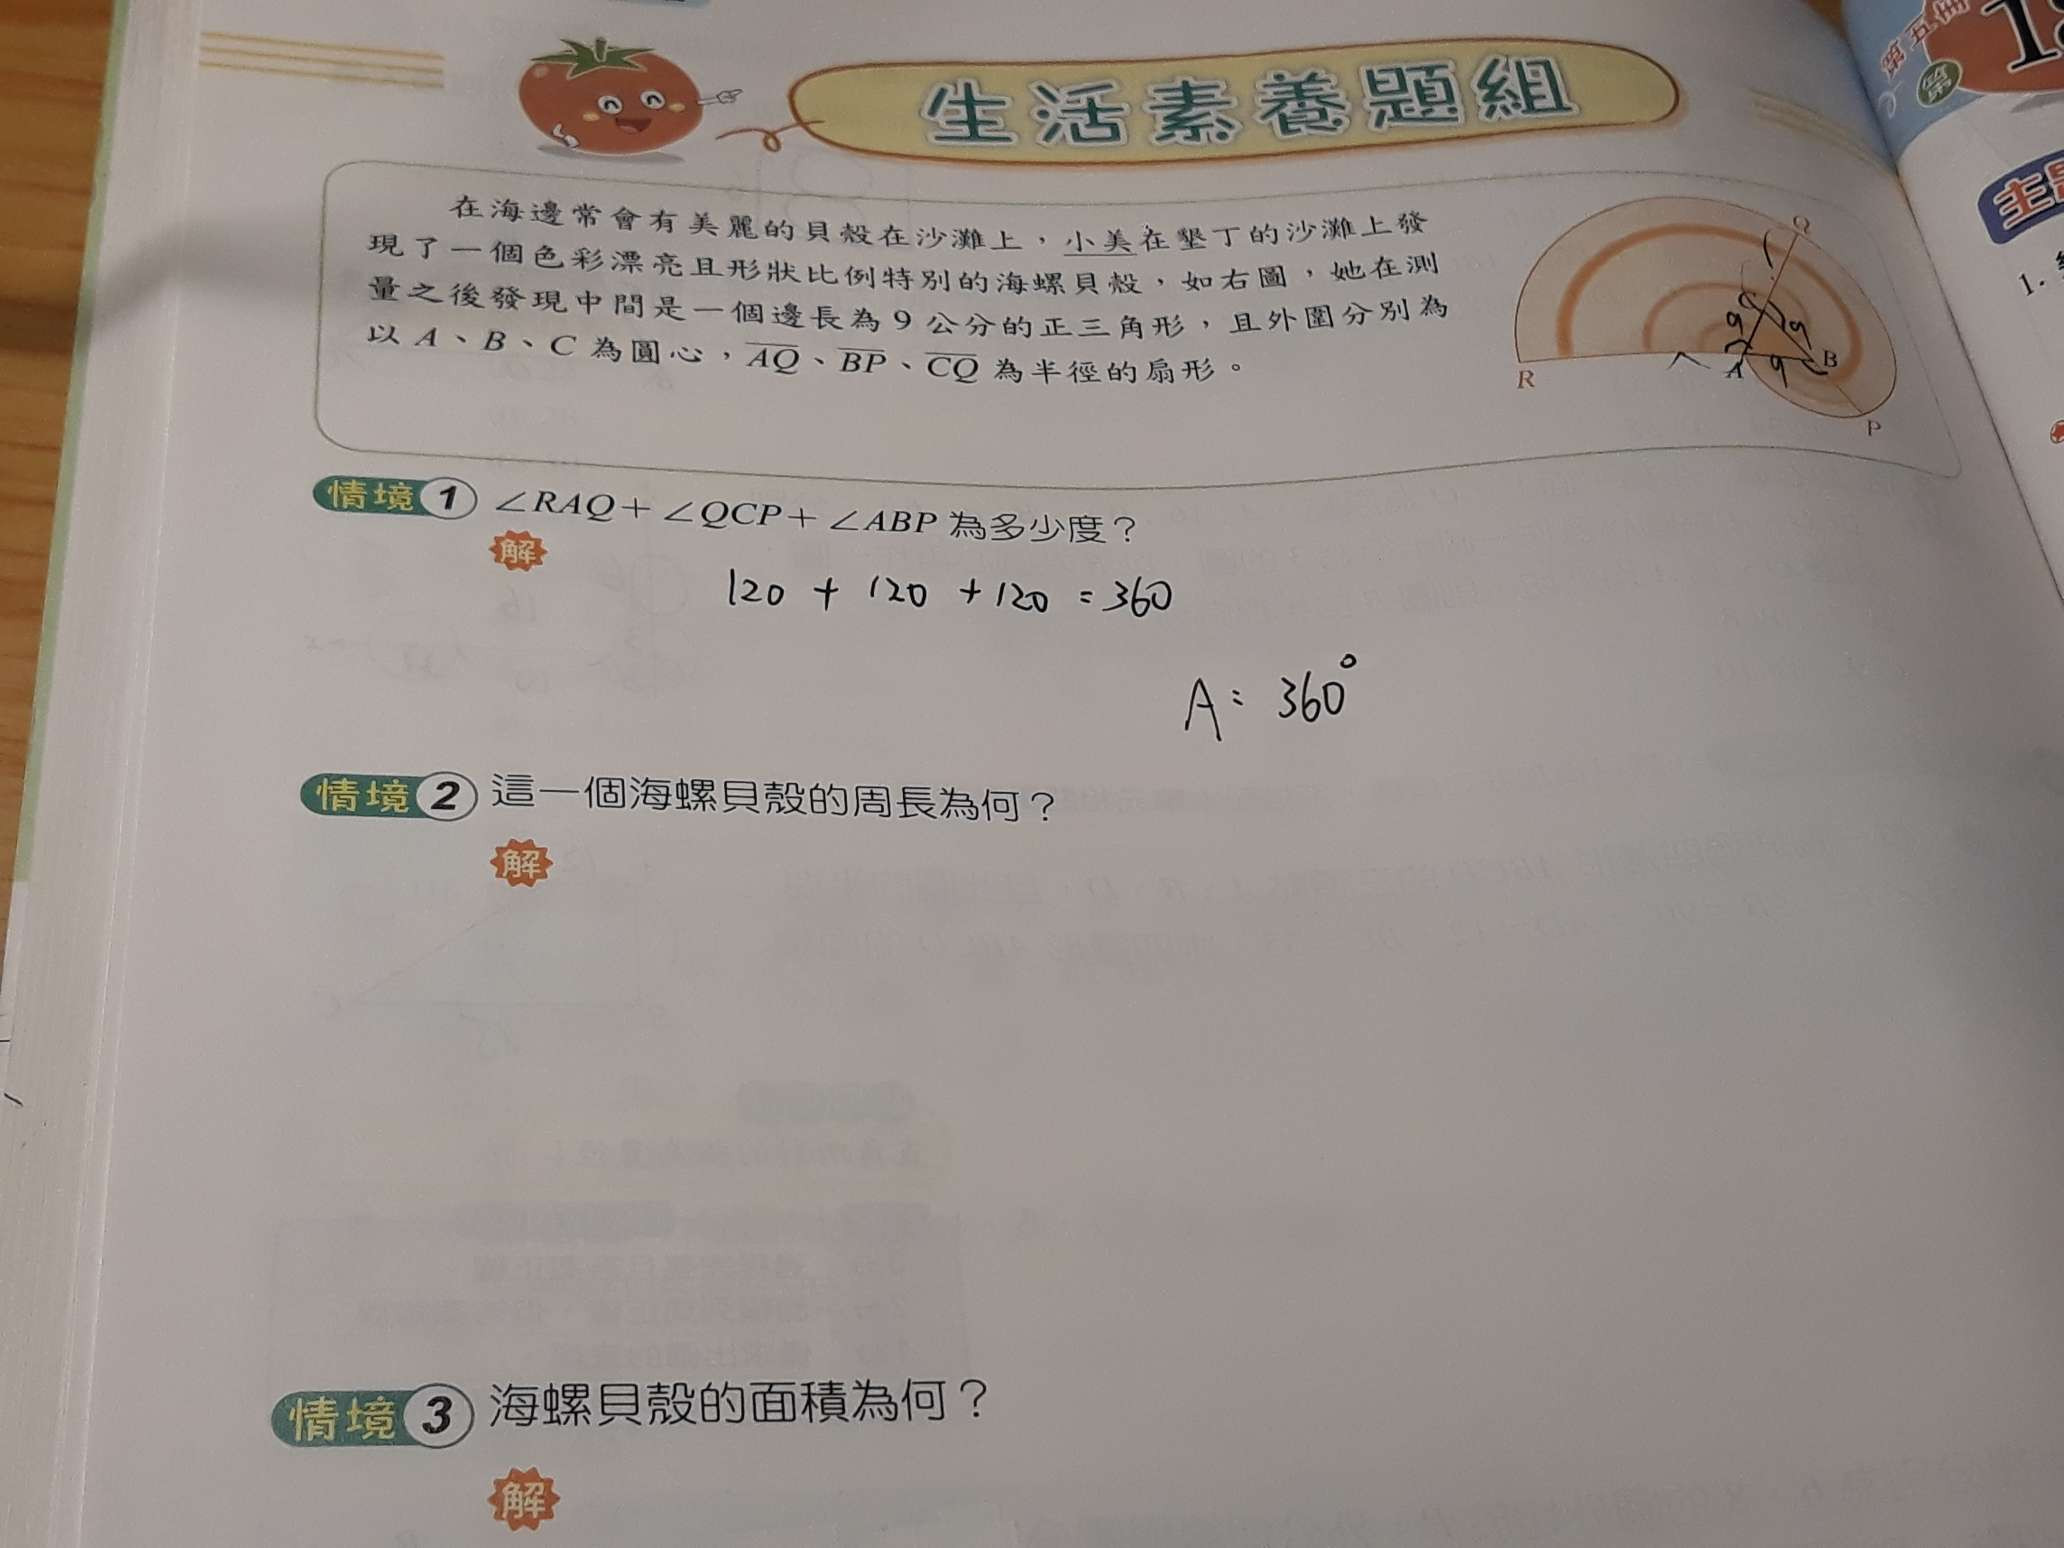 生活素養題組
第五冊
第
主
1.
在海邊常會有美麗的貝殼在沙灘上，小美在墾丁的沙灘上發
現了一個色彩漂亮且形狀比例特別的海螺貝殼，如右圖，她在測
量之後發現中間是一個邊長為9公分的正三角形，且外圍分別為
以A、B、C為圓心，AQ、BP、CQ為半徑的扇形。
Q
C
9
9
R
A
9
B
P
情境1 ∠RAQ+∠QCP+∠ABP為多少度？
解
120 + 120 + 120 = 360
A: 360°
情境2 這一個海螺貝殼的周長為何？
解
情境3 海螺貝殼的面積為何？
解